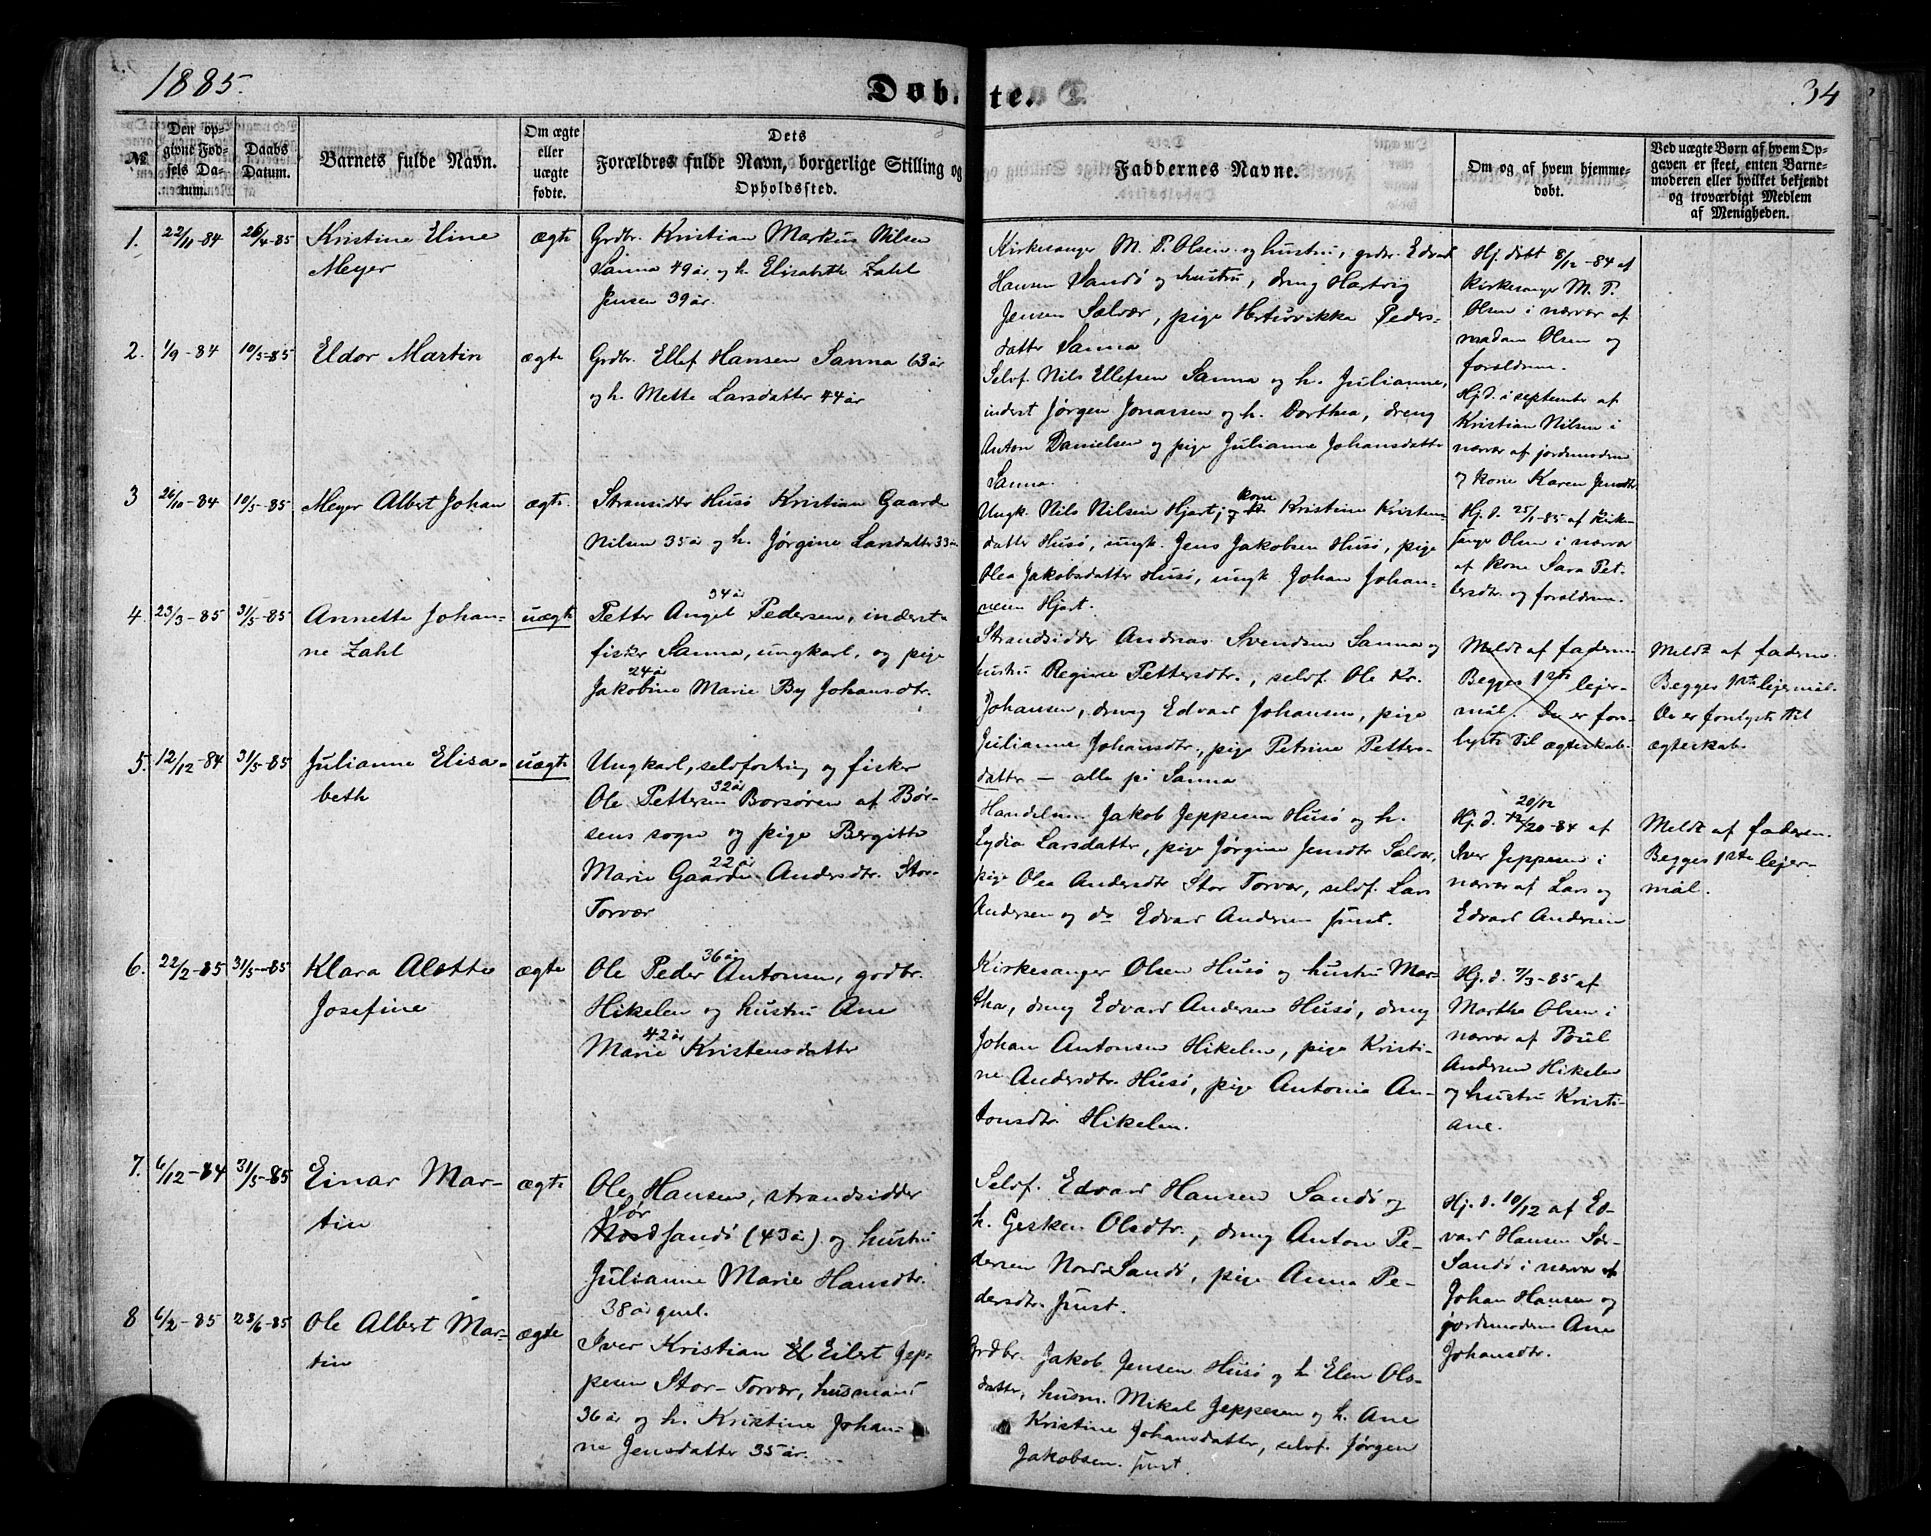 1885.
Døbte.
34
№
Den opgivne Fødsels Datum.
Daabs Datum.
Barnets fulde Navn.
Om ægte eller uægte fødte.
Dets Forældres fulde Navn, borgerlige Stilling og Opholdssted.
Faddernes Navne.
Om og af hvem hjemmedøbt.
Ved uægte Børn af hvem Opgaven er skeet, enten Barnemoderen eller hvilket bekjendt og troværdigt Medlem af Menigheden.
1. 22/11-84 26/4-85 Kristine Eline
Meyer
ægte
Grdbr. Kristian Markus Nilsen
Sanna 49 år og h. Elisabeth Zahl
Jensen 39 år.
Kirkesanger M. P. Olsen og hustru, grdbr. Edvard
Hansen Sandö og hustru, dreng Hartvig
Jensen Selvær, pige Hertvikka Peders-
datter Sanna
Hj. döbt 8/12-84 af
kirkesanger M. P.
Olsen i nærvær af
madam Olsen og
forældrene.
2. 1/9-84 10/5-85 Eldor Martin
ægte
Grdbr. Ellef Hansen Sanna 63 år
og h. Mette Larsdatter 44 år
Selvf. Nils Ellefsen Sanna og h. Julianne,
inderst Jörgen Jonassen og h. Dorthea, dreng
Anton Danielsen og pige Julianne Johansdatter
Sanna.
Hj. d. i september af
Kristian Nilsen i
nærvær af jordemoderen
og kone Karen Jensdtr.
3 26/10-84 10/5-85 Meyer Albert Johan
ægte
Stransidder Husö Kristian Gaarder
Nilsen 35 år og h. Jörgine Larsdatter 33 år
Ungk. Nils Nilsen Hjart, og kone Kristine Kristens-
datter Husö, ungk. Jens Jakobsen Husö, pige
Olea Jakobsdatter Husö, ungk. Johan Johan-
nesen Hjart.
Hj. d. 25/1-85 af kirke-
sanger Olsen i nærvær
af kone Sara Pet-
tersdtr. og forældrene.
4. 23/3-85 31/5-85 Annette Johan-
ne Zahl
uægte
34 år
Petter Angel Pedersen, inderst-
fisker Sanna, ungkarl, og pige
24 år
Jakobine Marie By Johansdtr.
Strandsidder Andreas Svendsen Sanna og
hustru Regine Pettersdtr., selvf. Ole Kr.
Johansen, dreng Edvard Johansen, pige
Julianne Johansdtr., pige Petrine Petters-
datter – alle på Sanna
Meldt af faderen.
Begges 1ste lejer-
mål. De er for-
lyste til ægteskab.
Meldt af faderen.
Begges 1ste lejermål.
De er forlyste til
ægteskab.
5. 12/12-84 31/5-85 Julianne Elisa-
beth
uægte
Ungkarl, selvforsörg og fisker
32 år
Ole Pettersen Borsören af Bör-
sens sogn og pige Bergitte
22 år
Marie Gaarder Andersdtr. Stor-
Torvær
Handelsm. Jakob Jeppesen Husö og h.
Lydia Larsdatter, pige Jörgine Jensdtr Selvær,
pige Olea Andersdtr Stor Torvær, selvf. Lars
Andersen og do Edvard Andersen smst.
20/12
Hj. d. 12/20-84 af
Iver Jeppesen i
nærvær af Lars og
Edvard Andersen
Meldt af faderen.
Begges 1ste lejer-
mål.
6. 22/2-85 31/5-85 Klara Alette
Josefine
ægte
36 år
Ole Peder Antonsen, gadbr.
Hikelen og hustru Ane
42 år
Marie Kristensdatter
Kirkesanger Olsen Husö og hustru Mar-
tha, dreng Edvard Andersen Husö, dreng
Johan Antonsen Hikelen, pige Kristi-
ne Andersdtr. Husö, pige Antonie An-
tonsdtr Hikelen.
Hj. d. 7/3-85 af
Martha Olsen i
nærvær af Poul
Andersen Hikelen
og hustru Kristi-
ane.
7. 6/12-84 31/5-85 Einar Mar-
tin
ægte
Ole Hansen, strandsidder
Sör
Nordsandö (43 år) og hustru
Julianne Marie Hansdtr.
38 år gml.
Selvf. Edvard Hansen Sandö og
h. Gesken Olsdtr., dreng Anton Pe-
dersen Nordsandö, pige Anna Pe-
dersdtr. smst.
Hj. d. 10/12 af Ed-
vard Hansen Sör-
Sandö i nærvær af
Johan Hansen og
jordemoderen Ane
Johansdtr.
8 6/2-85 28/6-85 Ole Albert Mar-
tin
ægte
Iver Kristian El Eilert Jep-
pesen Stor-Torvær, husmand
36 år og h. Kristine Johan-
ne Jensdatter 35 år.
Grdbr. Jakob Jensen Husö og h Elen Ols-
datter, husm. Mikal Jeppesen og h. Ane
Kristine Johansdatter, selvf. Jörgen
Jakobsen smst.